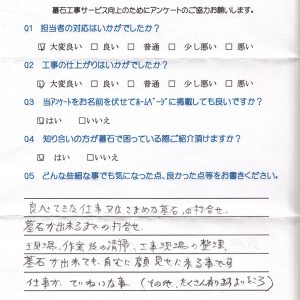 墓石工事サービス向上のためにアンケートのご協力お願いします。
Q1 担当者の対応はいかがでしたか?
☑ 大変良い □ 良い □ 普通 □ 少し悪い □ 悪い
Q2 工事の仕上がりはいかがでしたか?
☑ 大変良い □ 良い □ 普通 □ 少し悪い □ 悪い
Q3 当アンケートをお名前を伏せてホームページに掲載しても良いですか?
☑ はい □ いいえ
Q4 知り合いの方が墓石で困っている際ご紹介頂けますか?
☑ はい □ いいえ
Q5 どんな些細な事でも気になった点、良かった点等をお書きください。
良くできた仕事 又は こまめな墓石の打合せ
墓石が出来るまでの打合せ
現場、作業後の清掃、工事現場の整理
墓石が出来ても、自宅に顔見せに来る事です
仕事が、ていねいな事 (その他、たくさん有りますよ